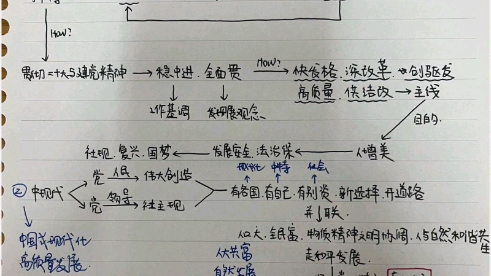 HOW?
HOW?
贯彻二十大与建党精神 → 稳中进. 全面贯 → 快发格. 深改革. → 创驱发
工作基调 发展观念.
高质量. 供结改 → 主线
目的.
社现. 复兴. 国梦 ← 发展安全. 法治保 ← 人增美
现代化 中特 社会
② 中现代 党 人民 → 伟大创造
党 领导 → 社主现
有各国. 有自己. 有别资. 新选择. 开道路
并联.
中国式现代化
高质量发展.
人口大. 全民富. 物质精神文明协调. 人与自然和谐共生
走和平发展.
人大共富
自然发展